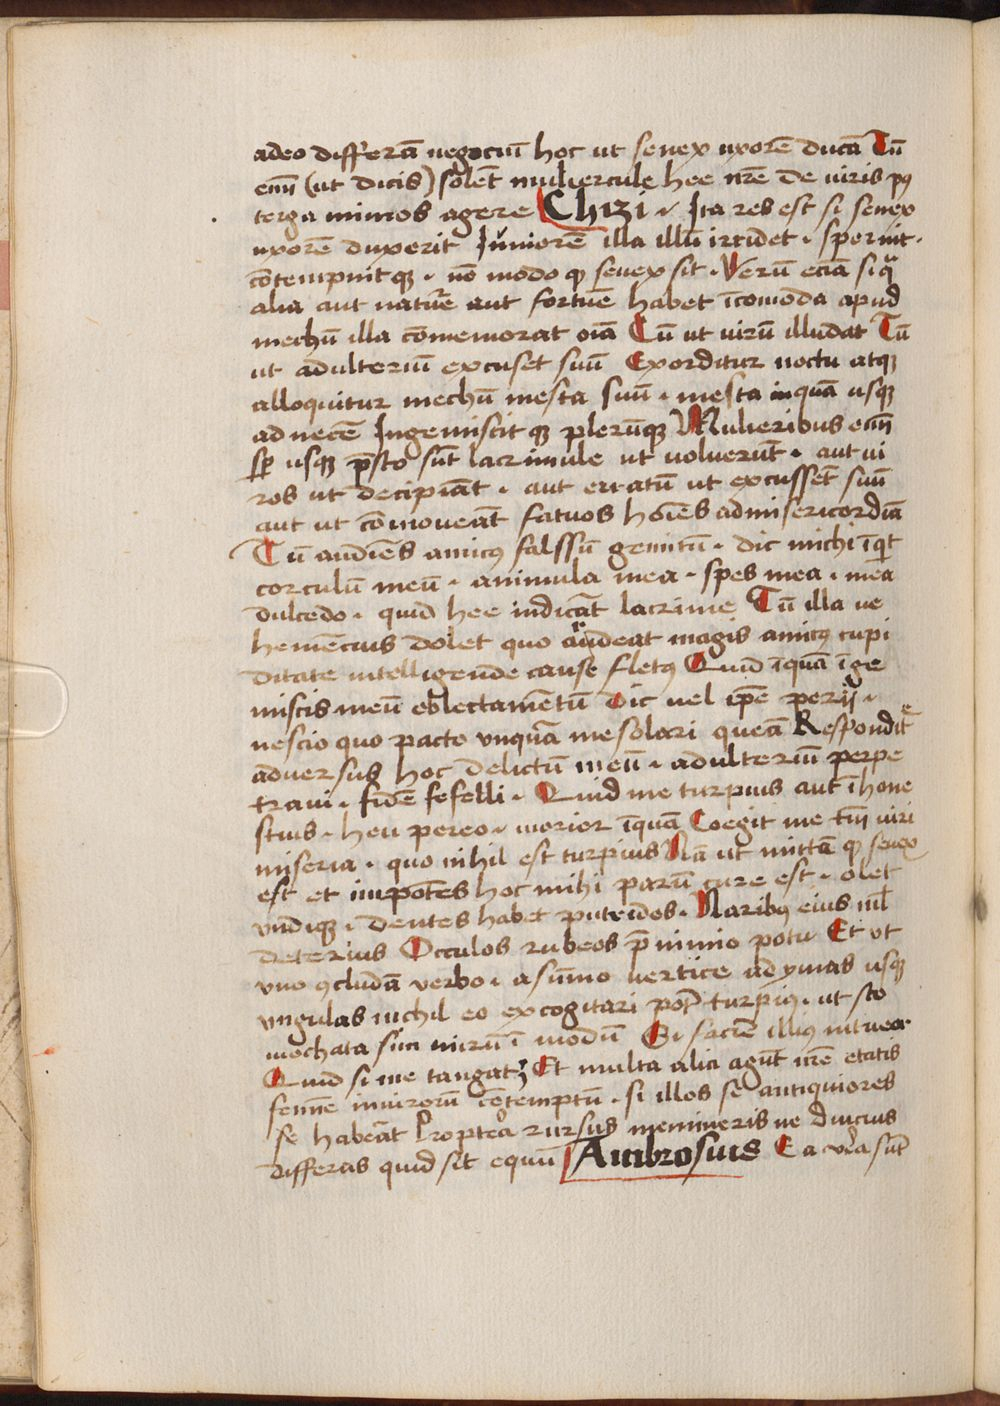 adeo differā negociū hoc ut senex uxorē ducā Tū
enī (ut dicis) solēt muliercule hee nr̄e de uiris pꝯ
terga mimos agere Chizi · Ita res est si senex
uxorē duxerit Iuniorē illa illū irridet · spernit ·
cōtempnit qꝫ · nō modo ꝙ senex sit · Verū eciā si qͣ
alia aut natur̄e aut fortūe habet īcomoda apud
mechū illa cōmemorat oīa Cū ut uirū illudat Tū
ut adulteriū excuset suū Exorditur noctu atqꝫ
alloquitur mechū mesta suū · mesta inquā usqꝫ
ad necē Ingemiscit qꝫ plerūqꝫ Mulieribus enī
sꝑ usqꝫ p̄sto sūt lacrimule ut uoluerūt · aut ui
ros ut decipiāt · aut erratū ut excussēt suū
aut ut cōmoueāt fatuos hoīes ad misericordiā
Tū audiēs amicꝯ falssū gemitū · dic michi īqͥt
corculū meū · animula mea · spes mea · mea
dulcedo · quid hee indicāt lacrime Tū illa ue
hemēcius dolet quo audeat magis amicꝯ cupi
ditate intelligende cause fletꝯ Quid īquā īge
miscis meū oblectamētū Dic uel ip̄e perij ·
nescio quo pacto vnquā me solari queā Respondit
aduersus hoc delictū meū · adulteriū perpe
traui · fidē fefelli · Quid me turpius aut īhone
stius · heu pereo · morior īquā Coegit me tm̄ uiri
miseria · quo nihil est turpius Nā ut mittā ꝙ senex
est et impotēs hoc mihi parū cure est · olet
vndiqꝫ · dentes habet putridos · Naribꝯ eius nīl
deterius Occulos rubeos p̄ nimio potu Et ut
vno ꝯcludā verbo · a sūmo uertice ad ymas usqꝫ
vngulas nichil eo excogitari pōt turpiꝯ · ut sto
mochata sim mirū ī modū Si faciē illiꝯ intuear
Quid si me tangat; Et multa alia agūt nr̄e etatis
femīe in uirorū cōtemptū · si illos se antiquiores
se habeāt Propterea rursus memineris ne diucius
differas quid sit equū Ambrosius Ea vera sūt